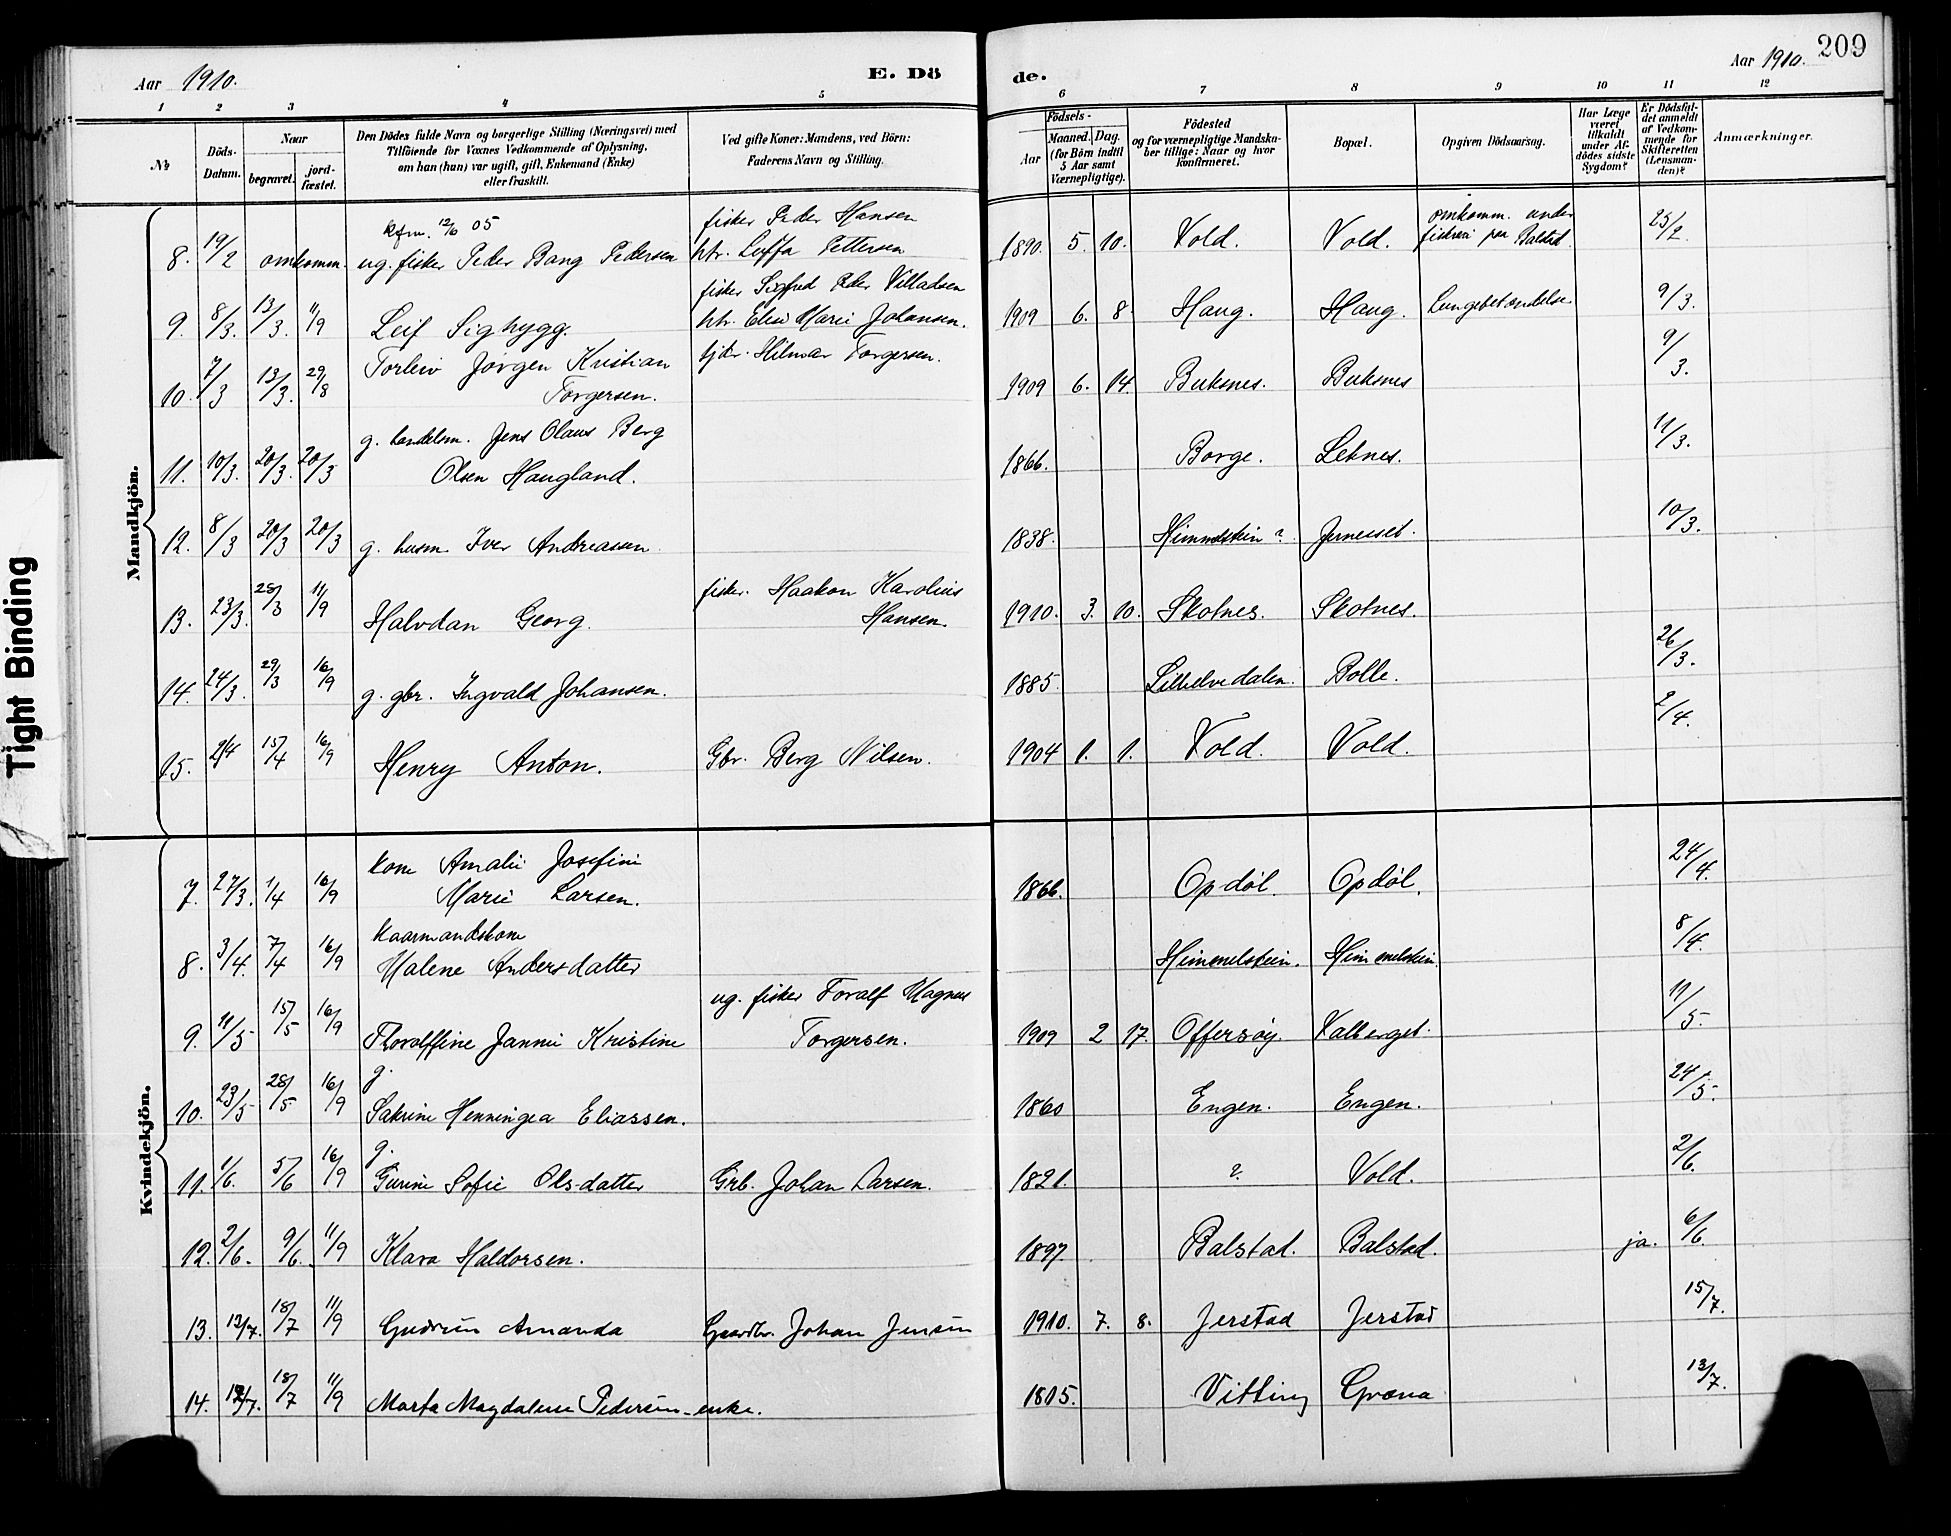 Aar 1910.
E. Dö
de.
Aar 1910.
209
1 2 3 4 5 6 7 8 9 10 11 12
№
Döds-Datum.
Naar
begravet.
jord-fæstet.
Den Dödes fulde Navn og borgerlige Stilling (Næringsvei) med
Tilföiende for Voxnes Vedkommende af Oplysning,
om han (hun) var ugift, gift, Enkemand (Enke)
eller fraskilt.
Ved gifte Koner: Mandens, ved Börn:
Faderens Navn og Stilling.
Födsels-
Aar
Maaned. Dag.
(for Börn indtil
5 Aar samt
Værnepligtige).
Födested
og for værnepligtige Mandska-
ber tillige: Naar og hvor
konfirmeret.
Bopæl.
Opgiven Dödsaarsag.
Har Læge
været
tilkaldt
under Af-
dödes sidste
Sygdom?
Er Dödsfal-
det anmeldt
af Vedkom-
mende for
Skifteretten
(Lensman-
den)?
Anmærkninger.
Tight Binding
Mandkjön.
kfm. 12/6 05 fisker Peder Hansen omkomm. under
8. 19/2 omkomm. ug. fisker Peder Bang Pedersen htr. Pettersen 1890. 5. 10. Vold. Vold. fiskeri paa Balstad. 25/2.
fisker Sigfred Peder Villadsen
9. 8/3. 13/3. 11/9 Leif Sighygg. htr. Elise Marie Johansen. 1909 6. 8 Haug. Haug. Lungebetændelse 9/3.
Torleiv Jørgen Kristian tjtr. Hilmar Torgersen.
10. 7/3 13/3. 29/8 Torgersen. 1909 6. 14. Buksnes. Buksnes 9/3.
g. handelsm. Jens Olaus Berg
11. 10/3. 20/3. 20/3 Olsen Haugland. 1866. Borge. Leknes. 11/3.
12. 8/3 20/3 20/3 g. husm. Iver Andreassen. 1838. Himmelstein? 10/3.
fisker. Haakon Karolius
13. 23/3. 28/3 11/9 Halvdan Georg. Hansen. 1910. 3. 10. Skotnes. Skotnes.
14. 24/3. 29/3 16/9 g. gbr. Ingvald Johansen. 1885. Lilleelvedalen. Bolle. 26/3.
15. 2/4 15/4 16/9 Henry Anton. Gbr. Berg Nilsen. 1904 1. 1. Vold. Vold. 2/4.
Kvindekjön.
kone Amalie Josefine
7. 27/3. 1/4 16/9 Marie Larsen. 1866. Opdøl. Opdøl. 24/4.
kaarmandskone
8. 3/4. 7/4 16/9 Malene Andersdatter Himmelstein. Himmelstein. 8/4.
ug. fisker Toralf Magnus
9. 11/5 15/5 16/9 Thoralffine Jannie Kristine Torgersen. 1909 2 17. Offersøy. Valberget. 11/5.
g.
10. 23/5 28/5 16/9 Sakrine Henningea Eliassen. 1860 Engen. Engen. 24/5.
g.
11. 1/6. 5/6 16/9 Gurine Sofie Olsdatter Grb. Johan Larsen. 1821. ?. Vold. 2/6.
12. 2/6. 9/6. 11/9 Klara Haldorsen. 1897. Balstad. Balstad. ja. 6/6.
13. 13/7. 18/7 11/9 Gudrun Amanda Gaardbr. Johan Jensen 1910. 7. 8. Jerstad Jerstad 15/7.
14. 12/7. 18/7 11/9 Marta Magdalene Pedersen - enke. 1815. Vitting Grøna 13/7.